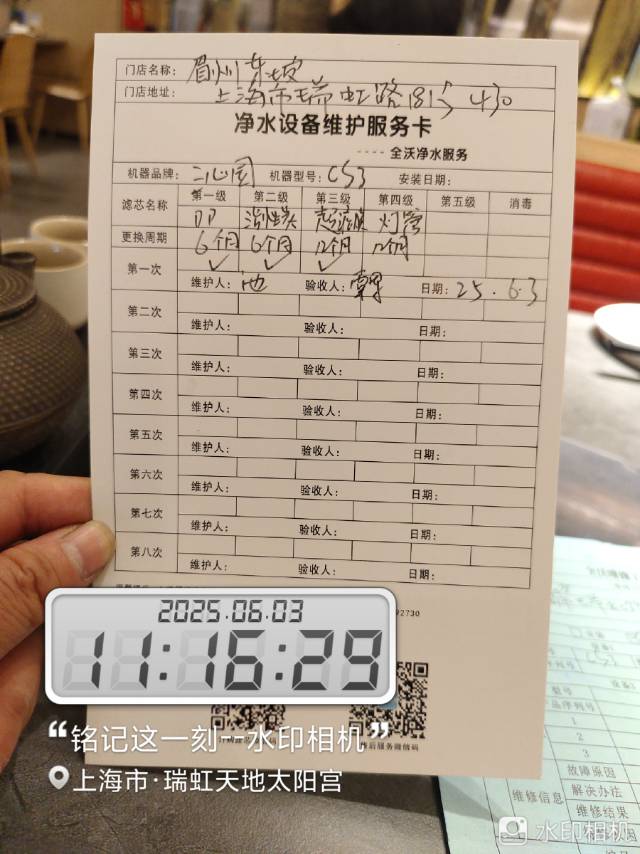 门店名称：眉州东坡
门店地址：上海市瑞虹路181号 430
净水设备维护服务卡
---- 全沃净水服务
机器品牌：沁园 机器型号：CS3 安装日期：
滤芯名称 第一级 第二级 第三级 第四级 第五级 消毒
PP 活性炭 超滤膜 灯管
更换周期 6个月 6个月 12个月 12个月
第一次 ✓ ✓ ✓
维护人：池 验收人： 日期：25.6.3
第二次
维护人： 验收人： 日期：
第三次
维护人： 验收人： 日期：
第四次
维护人： 验收人： 日期：
第五次
维护人： 验收人： 日期：
第六次
维护人： 验收人： 日期：
第七次
维护人： 验收人： 日期：
第八次
维护人： 验收人： 日期：
92730
售后服务微信码
2025.06.03
11:16:29
“铭记这一刻--水印相机”
上海市·瑞虹天地太阳宫
CS
型号
序列号
1
2
3
故障原因
维修信息 解决办法
维修结果
水印相机